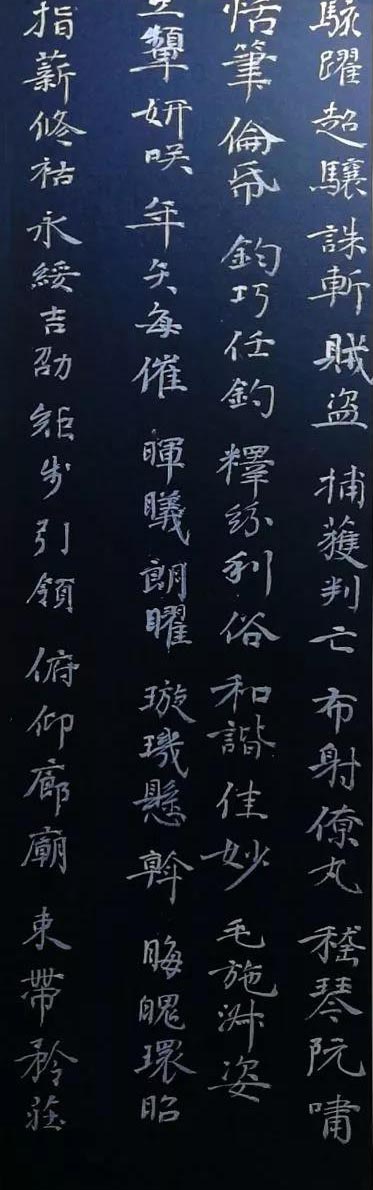 駭躍超驤誅斬賊盜捕獲判亡布射僚丸嵇琴阮嘯
恬筆倫帋鈞巧任釣釋紛利俗和諧佳妙毛施淑姿
顰妍咲年矢每催暉曦朗曜璇璣懸斡晦魄環昭
指薪修祜永綏吉劭矩步引領俯仰廊廟束帶矜莊